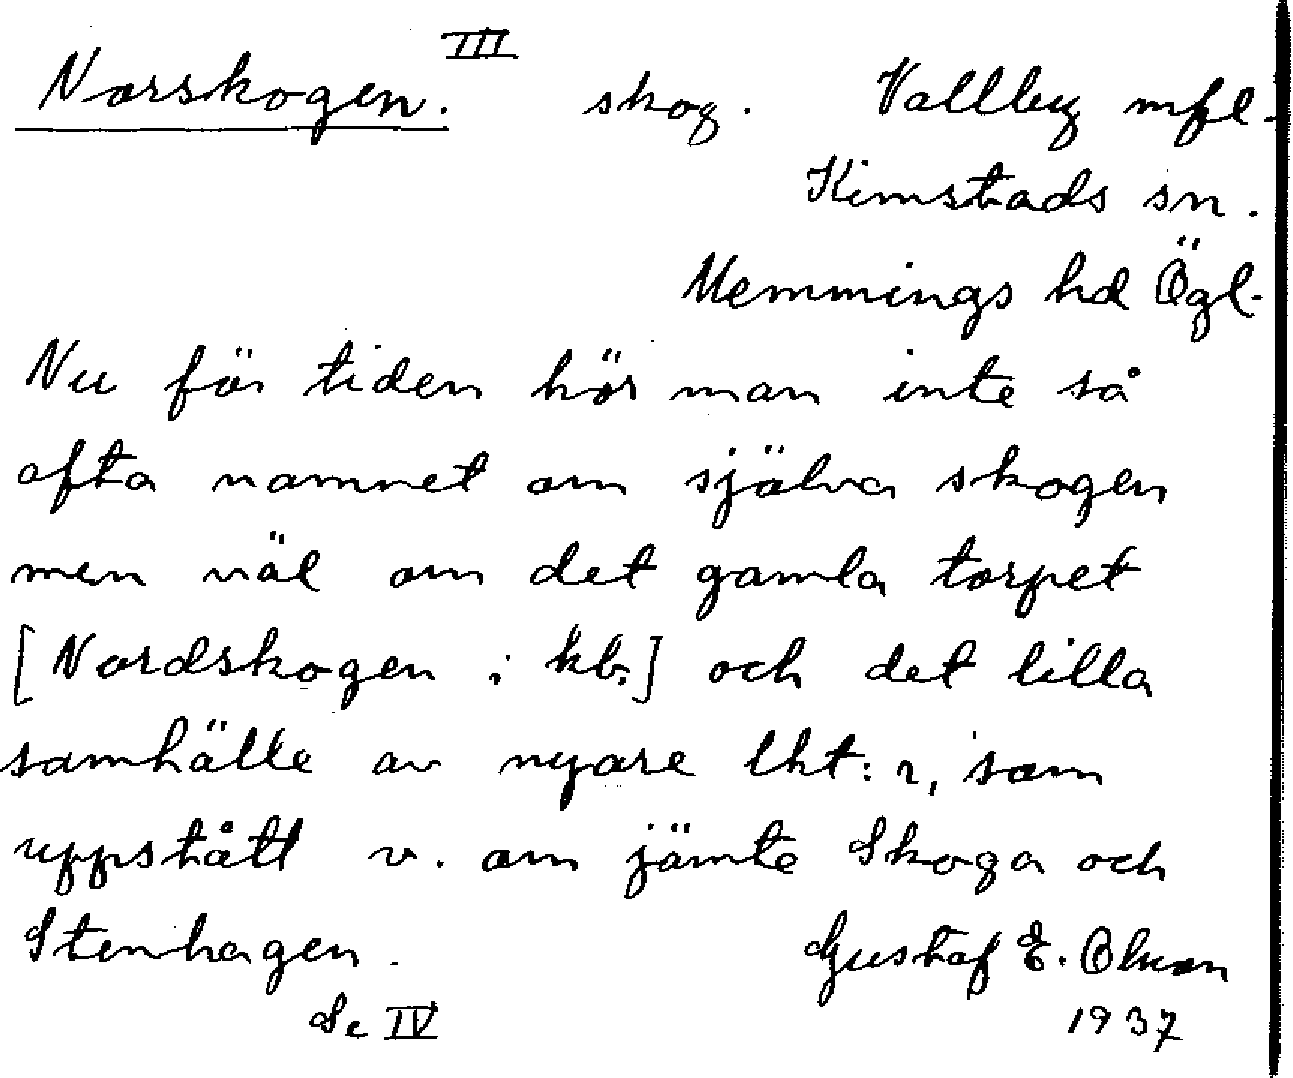 Norskogen. III skog. Vallby mfl.
Kimstads sn.
Memmings hd Ögl.
Nu för tiden hör man inte så
ofta namnet om själva skogen
men väl om det gamla torpet
[Nordskogen i kb.] och det lilla
samhälle av nyare lht:r, som
uppstått v. om jämte Skoga och
Stenhagen. Gustaf E. Olsson
Se IV 1937